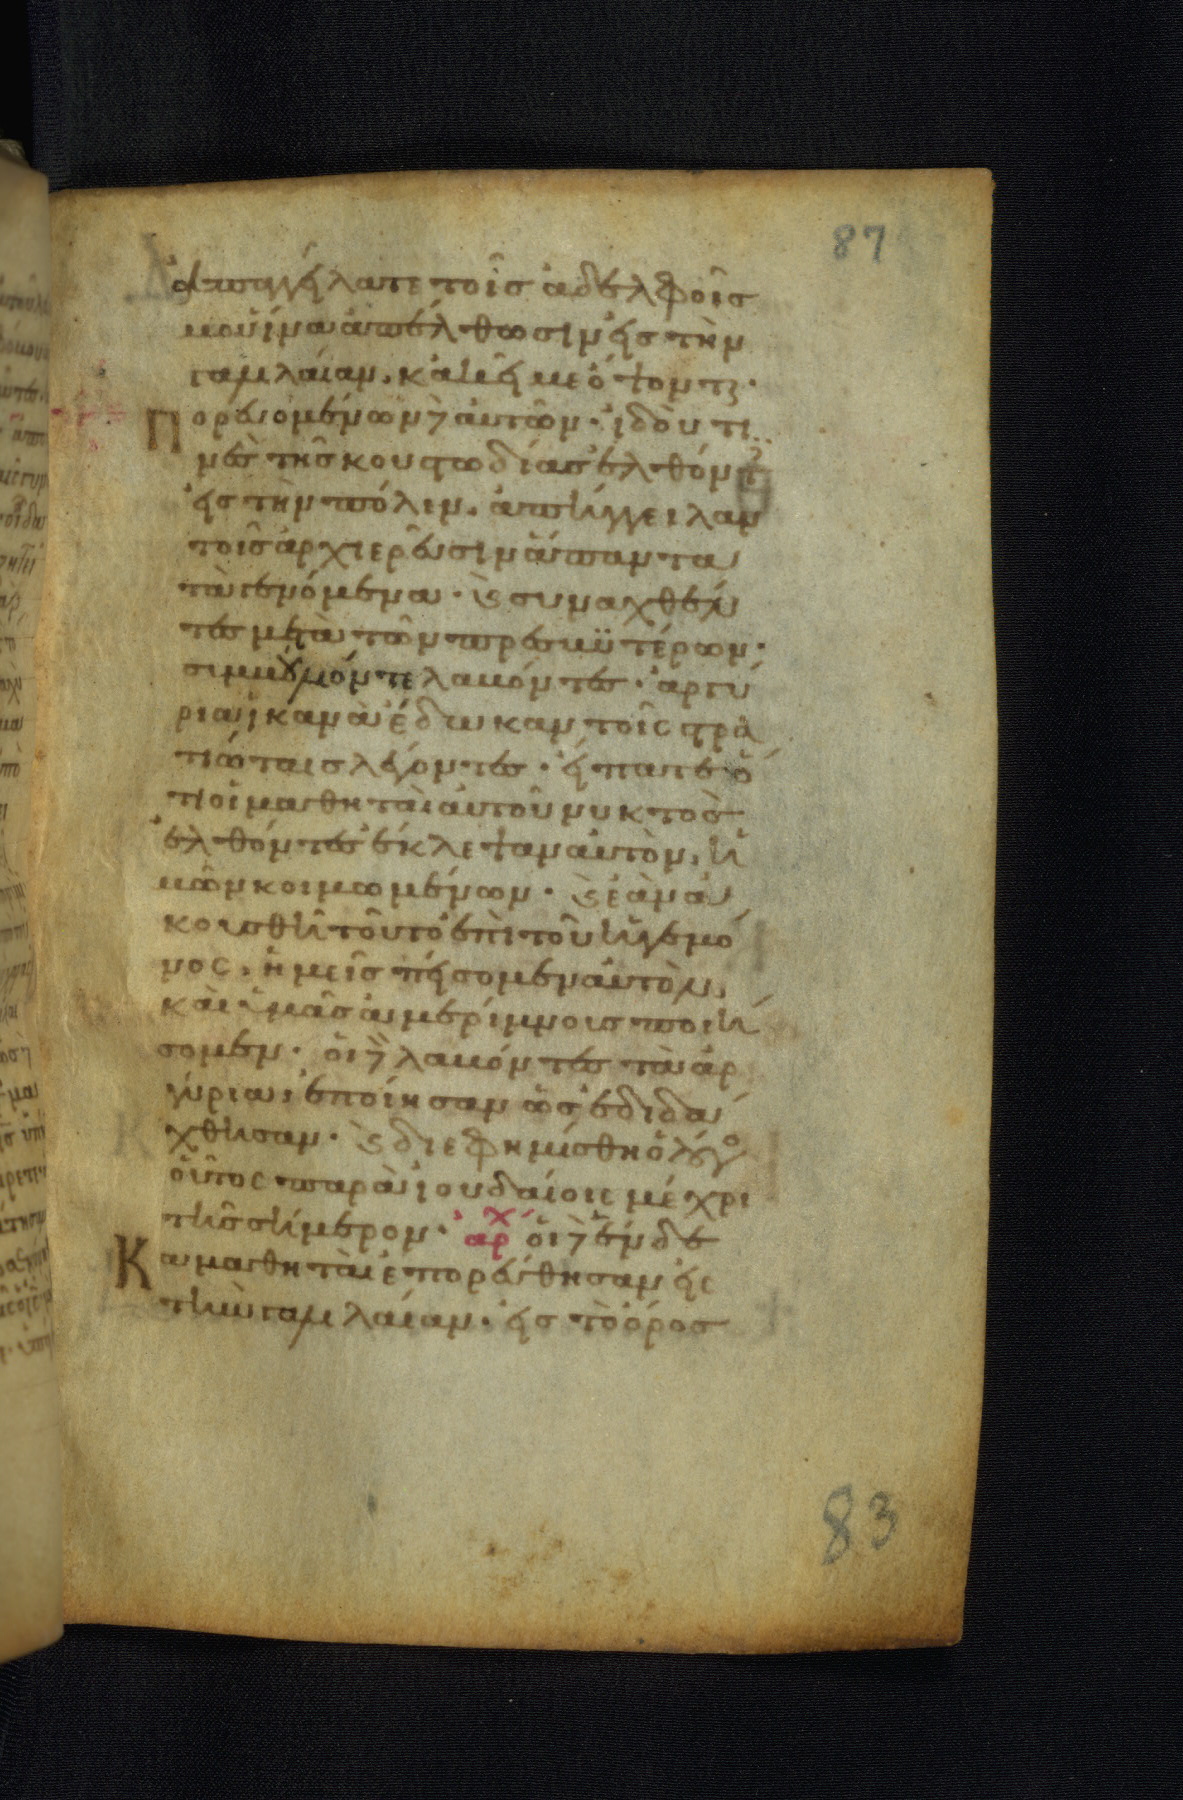 87
ἀπαγγείλατε τοῖς ἀδελφοῖς
μου ἵνα ἀπέλθωσιν εἰς τὴν
γαλιλαίαν. κἀκεῖ με ὄψονται·
Πορευομένων δὲ αὐτῶν· ἰδού τι
νὲς τῆς κουστωδίας ἐλθόντες
εἰς τὴν πόλιν. ἀπήγγειλαν
τοῖς ἀρχιερεῦσιν ἅπαντα
τὰ γενόμενα· καὶ συναχθέν
τες μετὰ τῶν πρεσβϋτέρων·
συμβούλιόν τε λαβόντες· ἀργύ
ρια ἱκανὰ ἔδωκαν τοῖς στρα
τιώταις λέγοντες· εἴπατε ὅ
τι οἱ μαθηταὶ αὐτοῦ νυκτὸς
ἐλθόντες ἔκλεψαν αὐτὸν, ἡ
μῶν κοιμωμένων· καὶ ἐὰν ἀ
κουσθῆ τοῦτο ἐπὶ τοῦ ἡγεμό
νος, ἡμεῖς πείσομεν αὐτὸν,
καὶ ὑμᾶς ἀμερίμνους ποιή
σομεν· οἱ δὲ λαβόντες τὰ ἀρ
γύρια, ἐποίησαν ὡς ἐδιδά
χθησαν· καὶ διεφημίσθη ὁ λόγος
οὗτος παρὰ ἰουδαίοις μέχρι
τῆς σήμερον· ἀρχ οἱ δὲ ἕνδε
Κα μαθηταὶ ἐπορεύθησαν εἰς
τὴν γαλιλαίαν· εἰς τὸ ὄρος
83